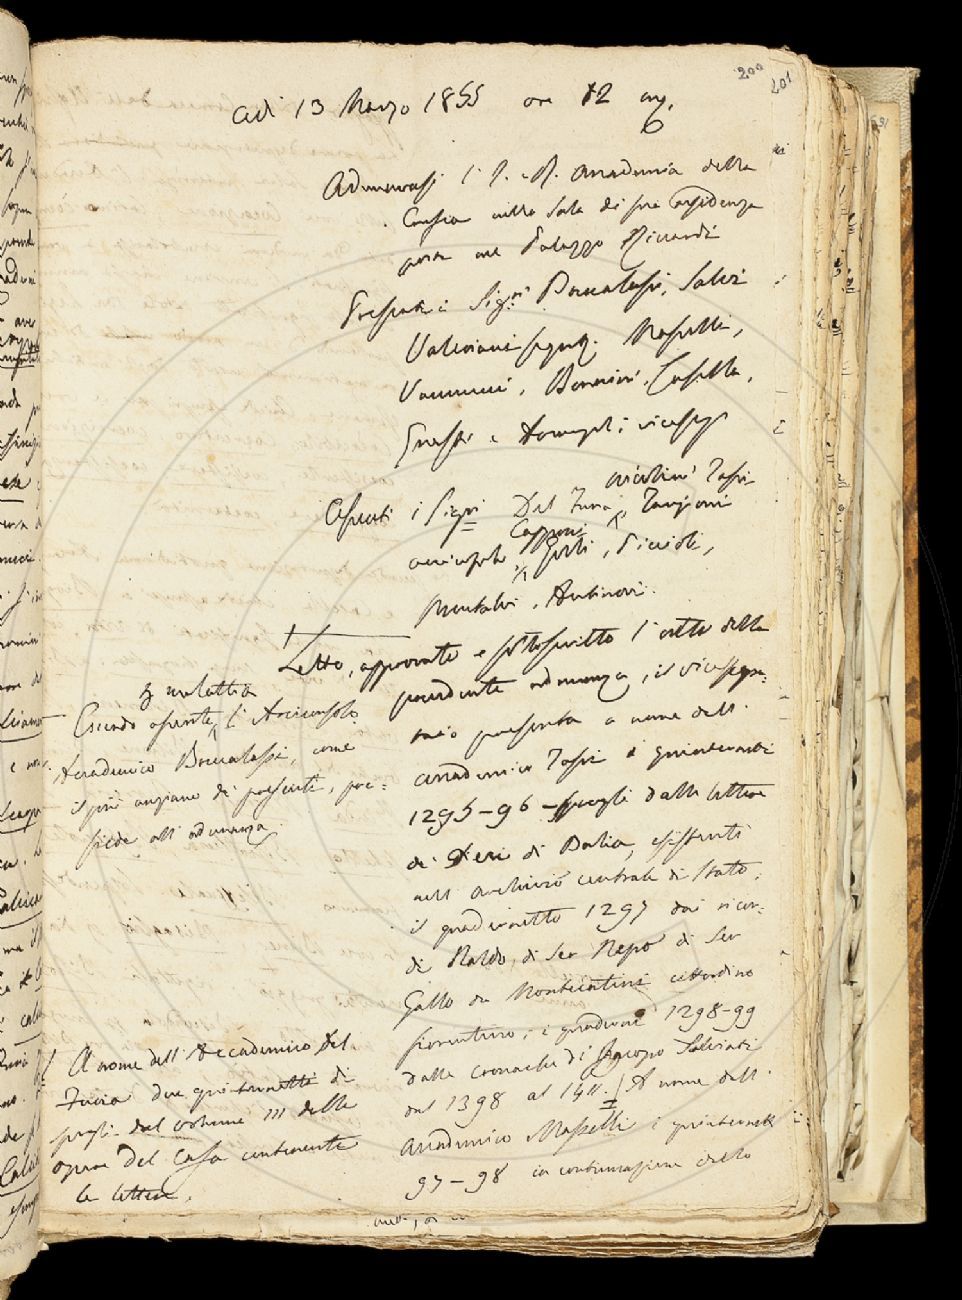 200
201
Adì 13 Marzo 1855 ore 12 m.
Adunavasi l' I. e R. Accademia della
Crusca nella sala di sua residenza
posta nel Palazzo Riccardi
Presenti i Sigri Brucalassi, Salvi
Valeriani segret. Masselli,
Vannucci, Bonaini, Casella,
e Arcangeli vicesegr
Nicolini Tassi
Assenti i Sigri Del Furia, Targioni
Capponi
arciconsolo, Gotti, Piccioli,
Puntalvi, Antinori.
Letto, approvato e sottoscritto l'atto della
precedente adunanza, il vicesegre-
tario presenta a nome dell'
accademico Tassi i quinternetti
1295-96 spogli dalle lettere
ai Dieci di Balìa, esistenti
nell'archivio centrale di Stato,
il quadernetto 1297 dai ricor-
di Naldo, di Ser Nepo di Ser
Gallo da Montecatini cittadino
fiorentino; i quaderni 1298-99
dalle cronache di Jacopo Salviati
dal 1398 al 1411. A nome dell'
accademico Masselli i quinternetti
97-98 in continuazione dello
p malattia
Essendo assente l'Arciconsolo
Accademico Brucalassi, come
il più anziano di presenti, pre-
siede all'adunanza
A nome dell'Accademico Del
Furia due quinternetti di
spogli dal volume III delle
opere del Casa contenente
le lettere.